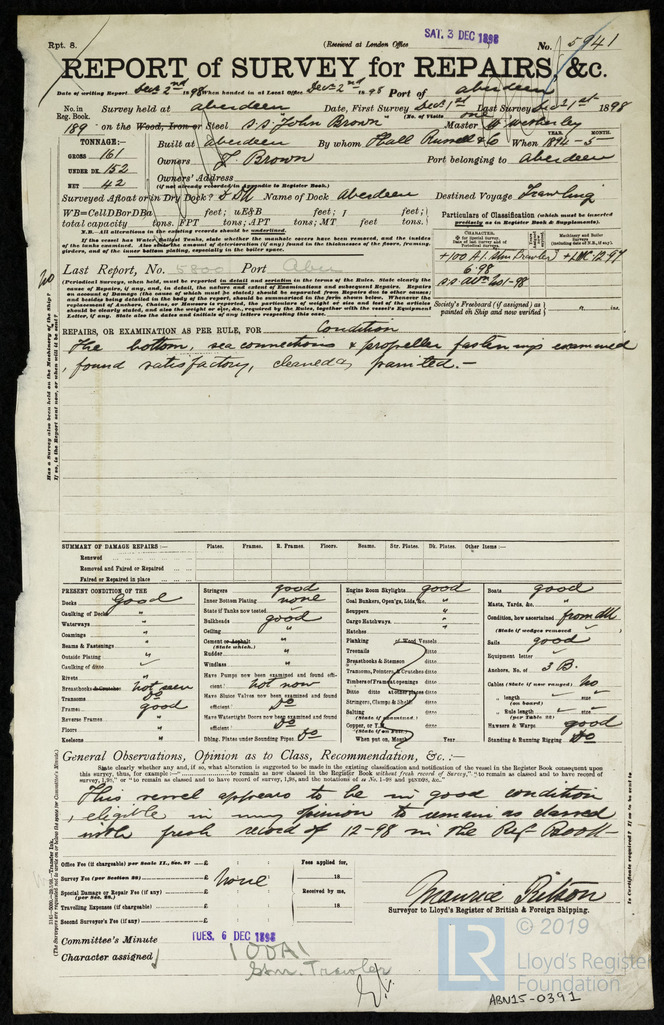 Rpt. 8.
(Received at London Office
SAT. 3 DEC 1898
No. 5941
REPORT of SURVEY for REPAIRS, &c.
Date of writing Report Decr 2nd 1898 When handed in at Local Office Decr 2nd 1898 Port of Aberdeen
No. in Reg. Book.
Survey held at Aberdeen Date, First Survey Decr 1st Last Survey Decr 1st 1898
(No. of Visits one)
189 on the Wood, Iron or Steel S.S. "John Brown" Master W. Westerley
TONNAGE:—
GROSS 161
UNDER DK. 152
NET 42
Built at Aberdeen By whom Hall Russell & Co When 1894-5
YEAR. MONTH.
Owners J Brown Port belonging to Aberdeen
Owners' Address
(if not already recorded in Appendix to Register Book.)
Surveyed Afloat or in Dry Dock? Name of Dock Aberdeen Destined Voyage Trawling
WB=CellDBorDBa feet; uE&B feet; f feet;
total capacity tons. FPT tons; APT tons; MT feet tons.
N.B.—All alterations in the existing records should be underlined.
If the vessel has Water Ballast Tanks, state whether the manhole covers have been removed, and the insides of the tanks examined. Also state the amount of deterioration (if any) found in the thicknesses of the floors, framing, girders, and of the inner bottom plating, especially in the boiler space.
Particulars of Classification (which must be inserted precisely as in Register Book & Supplements).
CHARACTER.
Machinery and Boiler Surveys
(including date of N.B., if any).
+100 A1 Stm Trawler +LMC 12,97
6.98
Society's Freeboard (if assigned) as painted on Ship and now verified
Last Report, No. 5800 Port Aben
(Periodical Surveys, when held, must be reported in detail and seriatim in the terms of the Rules. State clearly the cause of Repairs, if any, and, in detail, the nature and extent of Examinations and subsequent Repairs. Repairs on account of Damage (the cause of which must be stated) should be separated from Repairs due to other causes; and besides being detailed in the body of the report, should be summarised in the form shown below. Whenever the replacement of Anchors, Chains, or Hawsers is reported, the particulars of weight or size and test of the articles should be clearly stated, and also the weight or size, &c., required by the Rules, together with the vessel's Equipment Letter, if any. State also the dates and initials of any letters respecting this case.
Has a Survey also been held on the Machinery of the Ship? No
If so, is the Report sent now, or when will it be sent?
REPAIRS, OR EXAMINATION AS PER RULE, FOR Condition
The bottom, sea connections & propeller fastenings examined
, found satisfactory, cleaned & painted.—
SUMMARY OF DAMAGE REPAIRS:— Plates. Frames. R. Frames. Floors. Beams. Str. Plates. Dk. Plates. Other Items:—
Renewed
Removed and Faired or Repaired
Faired or Repaired in place
PRESENT CONDITION OF THE
Decks Good
Caulking of Decks "
Waterways "
Coamings "
Beams & Fastenings "
Outside Plating "
Caulking of ditto
Rivets "
Breasthooks & Crutches Not seen
Transoms Do
Frames good
Reverse Frames "
Floors "
Keelsons "
Stringers good
Inner Bottom Plating none
State if Tanks now tested
Bulkheads good
Ceiling "
Cement or Asphalt "
(State which.)
Rudder "
Windlass "
Have Pumps now been examined and found efficient? Not now
Have Sluice Valves now been examined and found efficient? Do
Have Watertight Doors now been examined and found efficient? Do
Dblng. Plates under Sounding Pipes Do
Engine Room Skylights good
Coal Bunkers, Open'gs, Lids, &c. "
Scuppers "
Cargo Hatchways "
Hatches "
Planking of Wood Vessels
Treenails ditto
Breasthooks & Stemson ditto
Transoms, Pointers, & Crutches ditto
Timbers of Frame at openings ditto
Ditto ditto at other places ditto
Stringers, Clamps & Shelf ditto
Salting ditto
(State if examined.)
Copper, or Y.M. ditto
When put on, Month Year
Boats good
Masts, Yards, &c. "
Condition, how ascertained from dk
(State if wedges removed)
Sails good
Equipment letter
Anchors, No. of 3 B.
Cables (State if now ranged) No
" length size
(on board)
" Rule length size
(per Table 22)
Hawsers & Warps good
Standing & Running Rigging Do
General Observations, Opinion as to Class, Recommendation, &c.:—
State clearly whether any and, if so, what alteration is suggested to be made in the existing classification and notification of the vessel in the Register Book consequent upon this survey, thus, for example:—"to remain as now classed in the Register Book without fresh record of Survey," "to remain as classed and to have record of survey, 1,98," or "to remain as classed and to have record of survey, 1,98, and the notations of ss No. 1-98 and ptND98, &c."
This vessel appears to be in good condition
, eligible in my opinion to remain as classed
with fresh record of 12-98 in the Reg. Book—
Office Fee (if chargeable) per Scale II., Sec. 27 £
Survey Fee (per Section 28) £ None
Special Damage or Repair Fee (if any) £
(per Sec. 28.)
Travelling Expenses (if chargeable) £
Second Surveyor's Fee (if any) £
Fees applied for,
18
Received by me,
18
Maurice Ritson
Surveyor to Lloyd's Register of British & Foreign Shipping.
Committee's Minute TUES. 6 DEC 1898
Character assigned 100A1
Stm. Trawler
© 2019
LR
Lloyd's Register
Foundation
ABN15-0391